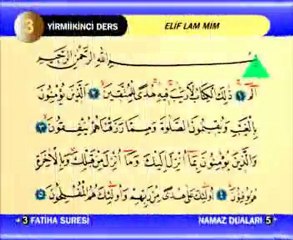 3 YİRMİİKİNCİ DERS ELIF LAM MIM
بِسْمِ اللّٰهِ الرَّحْمٰنِ الرَّحِيمِ
الٓمٓ ﴿١﴾ ذٰلِكَ الْكِتَابُ لَا رَيْبَ فِيهِ هُدًى لِلْمُتَّقِينَ ﴿٢﴾ اَلَّذِينَ يُؤْمِنُونَ
بِالْغَيْبِ وَيُقِيمُونَ الصَّلٰوةَ وَمِمَّا رَزَقْنَاهُمْ يُنْفِقُونَ ﴿٣﴾
وَالَّذِينَ يُؤْمِنُونَ بِمَٓا اُنْزِلَ اِلَيْكَ وَمَٓا اُنْزِلَ مِنْ قَبْلِكَ وَبِالْاٰخِرَةِ
هُمْ يُوقِنُونَ ﴿٤﴾ اُولٰٓئِكَ عَلٰى هُدًى مِنْ رَبِّهِمْ وَاُولٰٓئِكَ هُمُ الْمُفْلِحُونَ ﴿٥﴾
3 FATİHA SURESİ NAMAZ DUALARI 5